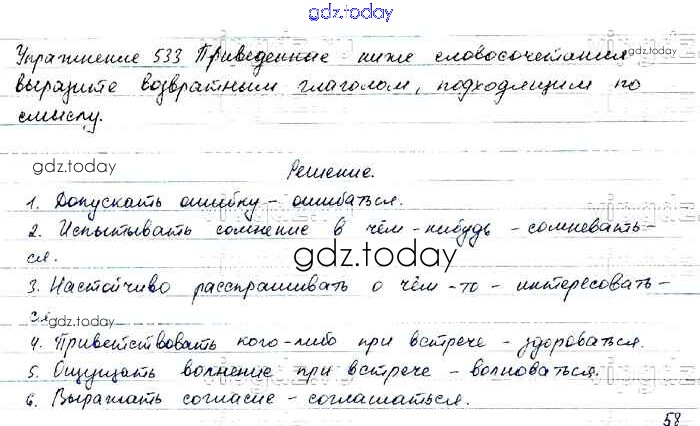 gdz.today
Упражнение 533 Приведенные ниже словосочетания
gdz.today
выразите возвратным глаголом, подходящим по
смыслу.
gdz.today
Решение.
1. Допускать ошибку - ошибаться.
2. Испытывать сомнение в чём-нибудь - сомневать-
ся.
gdz.today
3. Настойчиво расспрашивать о чём-то - интересовать-
ся
gdz.today
4. Приветствовать кого-либо при встрече - здороваться.
5. Ощущать волнение при встрече - волноваться.
6. Выражать согласие - соглашаться.
58